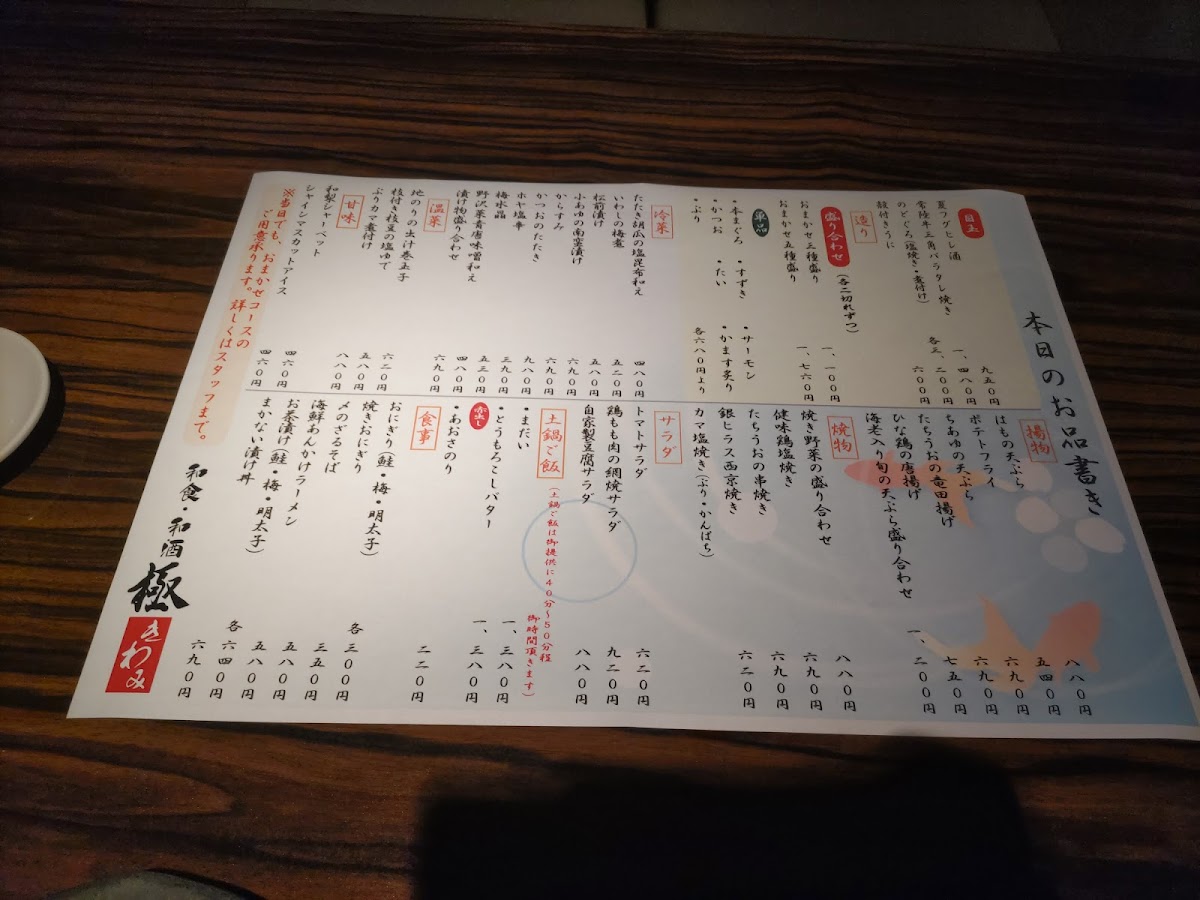 本日のお品書き
目玉
夏フグヒレ酒 九五〇円
常陸牛三角バラタレ焼き 一、四八〇円
のどぐろ(塩焼き・煮付け) 各三、二〇〇円
殻付きうに 六〇〇円
造り
盛り合わせ(各二切れずつ)
おまかせ三種盛り 一、一〇〇円
おまかせ五種盛り 一、七六〇円
単品
・本まぐろ ・すずき ・サーモン
・かつお ・たい ・かます炙り
・ぶり 各六八〇円より
冷菜
たたき胡瓜の塩昆布和え 四八〇円
いわしの梅煮 五二〇円
松前漬け 五八〇円
小あゆの南蛮漬け 六九〇円
からすみ 六九〇円
かつおのたたき 九八〇円
ホヤ塩辛 三九〇円
梅水晶 五三〇円
野沢菜青唐味噌和え 四八〇円
漬け物盛り合わせ 六九〇円
温菜
地のりの出汁巻玉子 六二〇円
枝付き枝豆の塩ゆで 五八〇円
ぶりカマ煮付け 八八〇円
甘味
和梨シャーベット 四六〇円
シャインマスカットアイス 四六〇円
※当日でも、おまかせコースの
ご用意承ります。詳しくはスタッフまで。
揚物
はもの天ぷら 八八〇円
ポテトフライ 五四〇円
ちあゆの天ぷら 六九〇円
たちうおの竜田揚げ 六九〇円
ひな鶏の唐揚げ 七五〇円
海老入り旬の天ぷら盛り合わせ 一、二〇〇円
焼物
焼き野菜の盛り合わせ 八八〇円
健味鶏塩焼き 六九〇円
たちうおの串焼き 六九〇円
銀ヒラス西京焼き 六二〇円
カマ塩焼き(ぶり・かんぱち)
サラダ
トマトサラダ 六二〇円
鶏もも肉の網焼サラダ 九二〇円
自家製豆腐サラダ 八八〇円
土鍋ご飯(土鍋ご飯は御提供に40分〜50分程
御時間頂きます)
・まだい 一、三八〇円
・とうもろこしバター 一、三八〇円
赤出し
・あおさのり 二二〇円
食事
おにぎり(鮭・梅・明太子) 各三〇〇円
焼きおにぎり 三五〇円
〆のざるそば 五八〇円
海鮮あんかけラーメン 五八〇円
お茶漬け(鮭・梅・明太子) 各六四〇円
まかない漬け丼 六九〇円
和食・和酒
極
きわみ